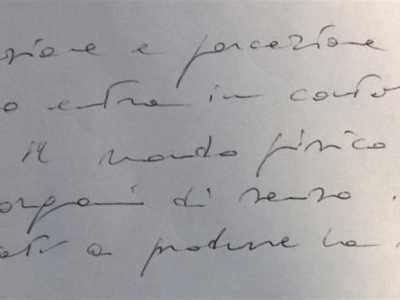 azione e percezione
o entra in conta
il mondo fisico
organi di senso.
ati a produrre la